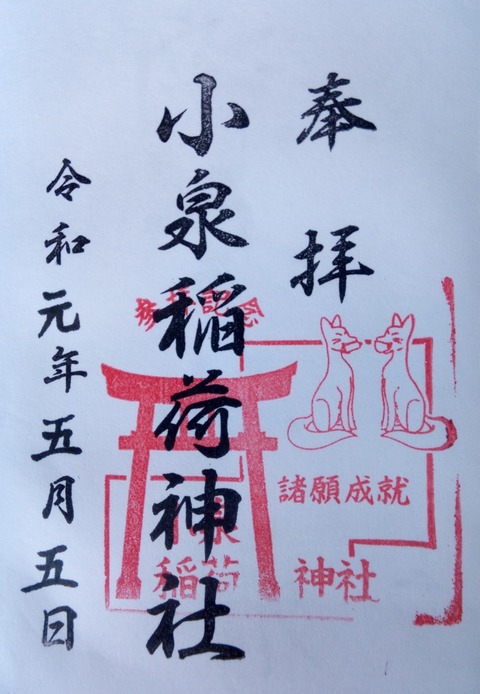 奉拝
小泉稲荷神社
令和元年五月五日
参拝記念
諸願成就
小泉
稲荷神社